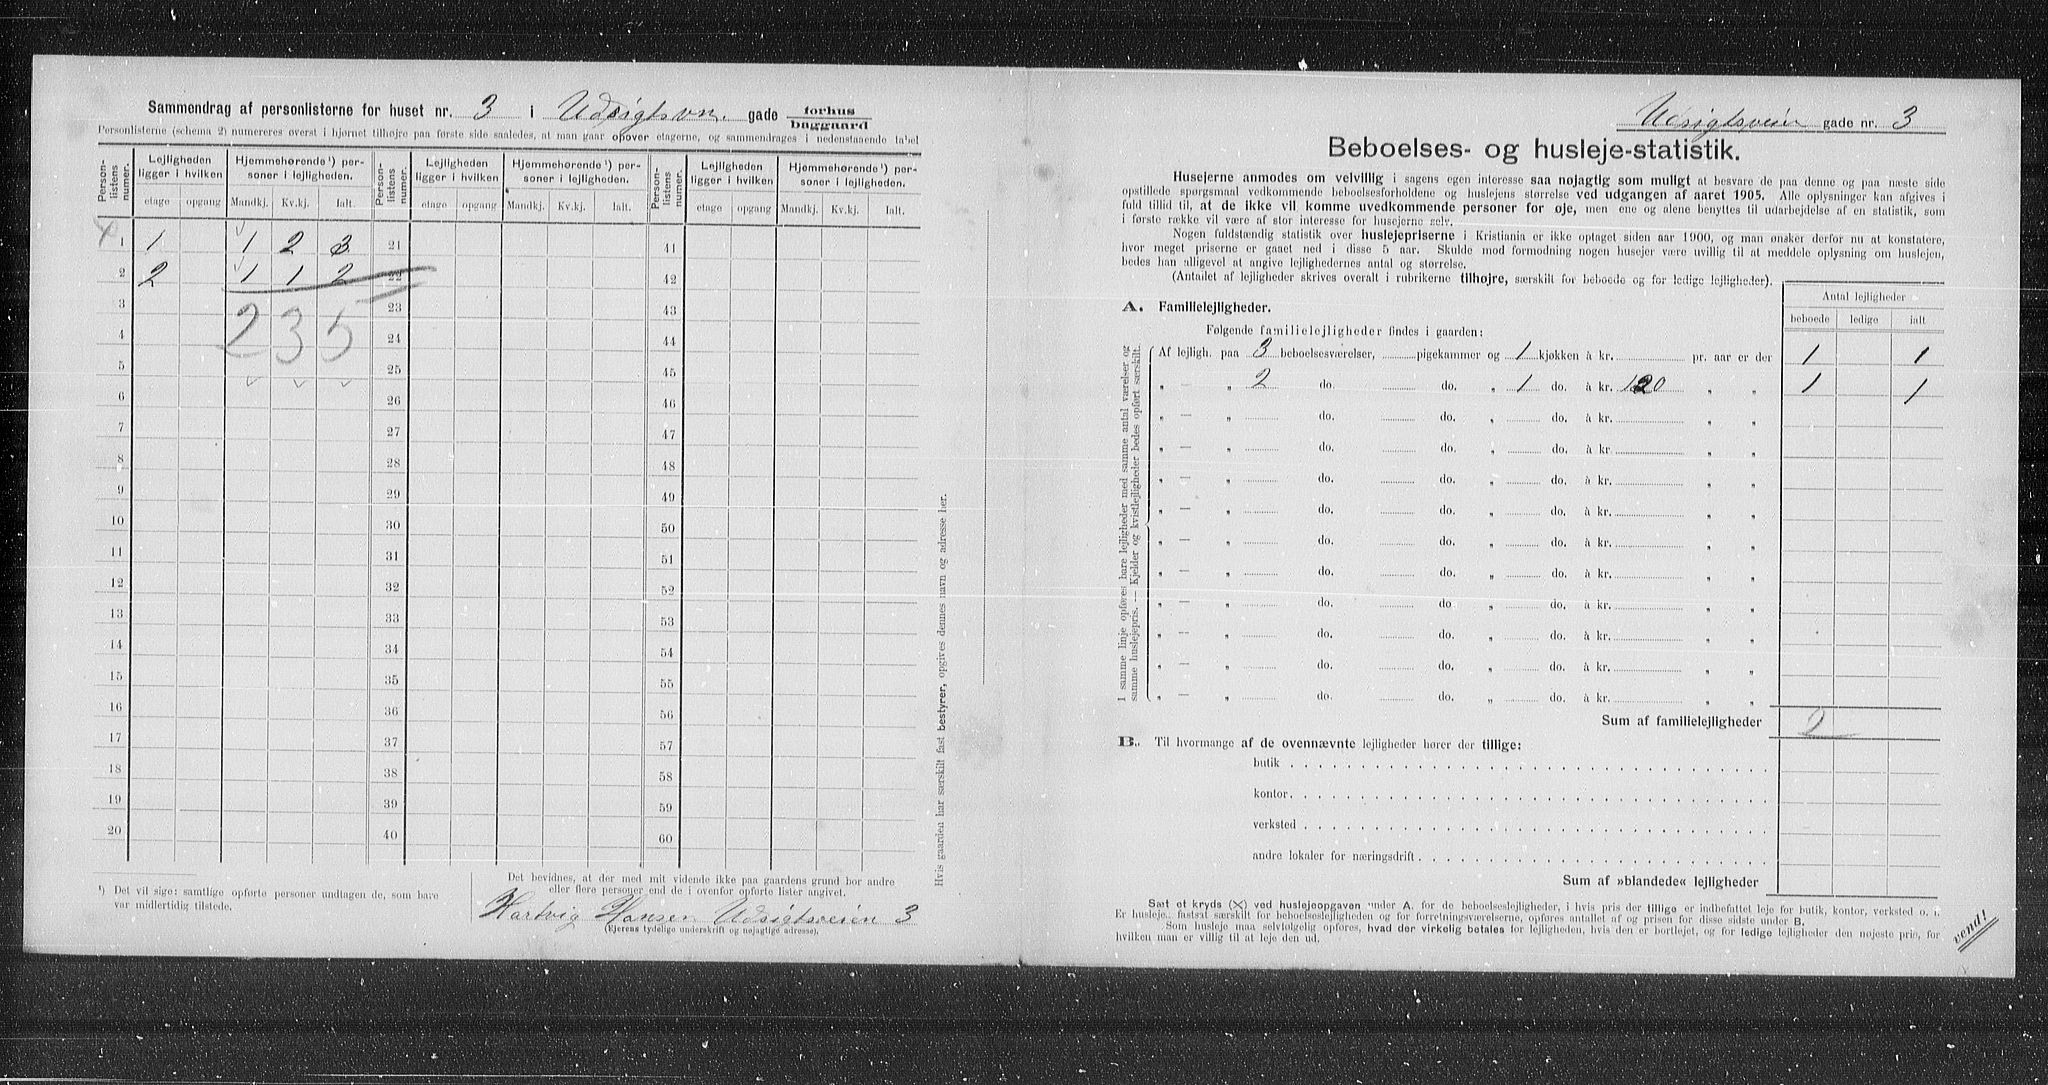 Sammendrag af personlisterne for huset nr. 3 i Udsigtsvn. gade forhus
baggaard
Personlisterne (schema 2) numereres øverst i hjørnet tilhøjre paa første side saaledes, at man gaar opover etagerne, og sammendrages i nedenstaaende tabel
Personlistens numer. Lejligheden ligger i hvilken Hjemmehørende ¹) personer i lejligheden. Personlistens numer. Lejligheden ligger i hvilken Hjemmehørende ¹) personer i lejligheden. Personlistens numer. Lejligheden ligger i hvilken Hjemmehørende ¹) personer i lejligheden.
etage opgang Mandkj. Kv.kj. Ialt. etage opgang Mandkj. Kv.kj. Ialt. etage opgang Mandkj. Kv.kj. Ialt.
1 1 1 2 3 21 41
2 2 1 1 2 22 42
3 2 3 5 23 43
4 24 44
5 25 45
6 26 46
7 27 47
8 28 48
9 29 49
10 30 50
11 31 51
12 32 52
13 33 53
14 34 54
15 35 55
16 36 56
17 37 57
18 38 58
19 39 59
20 40 60
¹) Det vil sige: samtlige opførte personer undtagen de, som bare
var midlertidig tilstede.
Det bevidnes, at der med mit vidende ikke paa gaardens grund bor andre
eller flere personer end de i ovenfor opførte lister angivet.
Hartvig Hansen Udsigtsveien 3
(Ejerens tydelige underskrift og nøjagtige adresse).
Hvis gaarden har særskilt fast bestyrer, opgives dennes navn og adresse her.
Udsigtsveien gade nr. 3
Beboelses- og husleje-statistik.
Husejerne anmodes om velvillig i sagens egen interesse saa nøjagtig som muligt at besvare de paa denne og paa næste side
opstillede spørgsmaal vedkommende beboelsesforholdene og huslejens størrelse ved udgangen af aaret 1905. Alle oplysninger kan afgives i
fuld tillid til, at de ikke vil komme uvedkommende personer for øje, men ene og alene benyttes til udarbejdelse af en statistik, som
i første række vil være af stor interesse for husejerne selv.
Nogen fuldstændig statistik over huslejepriserne i Kristiania er ikke optaget siden aar 1900, og man ønsker derfor nu at konstatere,
hvor meget priserne er gaaet ned i disse 5 aar. Skulde mod formodning nogen husejer være uvillig til at meddele oplysning om huslejen,
bedes han alligevel at angive lejlighedernes antal og størrelse.
(Antallet af lejligheder skrives overalt i rubrikerne tilhøjre, særskilt for beboede og for ledige lejligheder).
A. Familielejligheder.
Antal lejligheder
beboede ledige ialt
Følgende familielejligheder findes i gaarden:
I samme linje opføres bare lejligheder med samme antal værelser og
samme huslejepris. — Kjelder og kvistlejligheder bedes opført særskilt.
Af lejligh. paa 3 beboelsesværelser, pigekammer og 1 kjøkken à kr. pr. aar er der 1 1
„ — „ 2 do. do. „ 1 do. à kr. 120 „ „ 1 1
„ — „ do. do. „ do. à kr. „ „
„ — „ do. do. „ do. à kr. „ „
„ — „ do. do. „ do. à kr. „ „
„ — „ do. do. „ do. à kr. „ „
„ — „ do. do. „ do. à kr. „ „
„ — „ do. do. „ do. à kr. „ „
„ — „ do. do. „ do. à kr. „ „
„ — „ do. do. „ do. à kr. „ „
„ — „ do. do. „ do. à kr. „ „
„ — „ do. do. „ do. à kr. „ „
Sum af familielejligheder 2
B. Til hvormange af de ovennævnte lejligheder hører der tillige:
butik
kontor
verksted
andre lokaler for næringsdrift
Sum af »blandede« lejligheder
Sæt et kryds (×) ved huslejeopgaven under A. for de beboelseslejligheder, i hvis pris der tillige er indbefattet leje for butik, kontor, verksted o. l.
Er husleje fastsat særskilt for beboelseslejligheden og for forretningsværelserne, opføres antallet af og prisen for disse sidste under B.
Som husleje maa selvfølgelig opføres, hvad der virkelig betales for lejligheden, hvis den er bortlejet, og for ledige lejligheder den nøjeste pris, for
hvilken man er villig til at leje den ud.
vend!